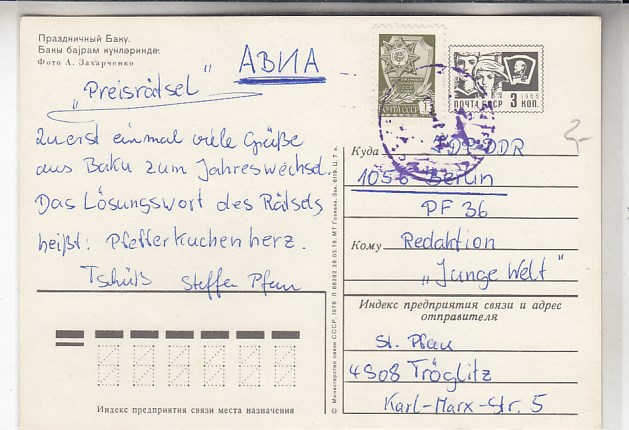 Праздничный Баку.
Бакы бајрам күнләриндә.
Фото А. Захарченко
АВИА
„Preisrätsel"
Zuerst einmal viele Grüße
aus Baku zum Jahreswechsel.
Das Lösungswort des Rätsels
heißt: Pfefferkuchenherz.
Tschüß Steffen Pfau
ПОЧТА СССР
ПОЧТА СССР 3 КОП.
1966
2,-
Куда DDR
1056 Berlin
PF 36
Кому Redaktion
„Junge Welt"
Индекс предприятия связи и адрес
отправителя
St. Pfau
4908 Tröglitz
Karl-Marx-Str. 5
Индекс предприятия связи места назначения
© Министерство связи СССР, 1978